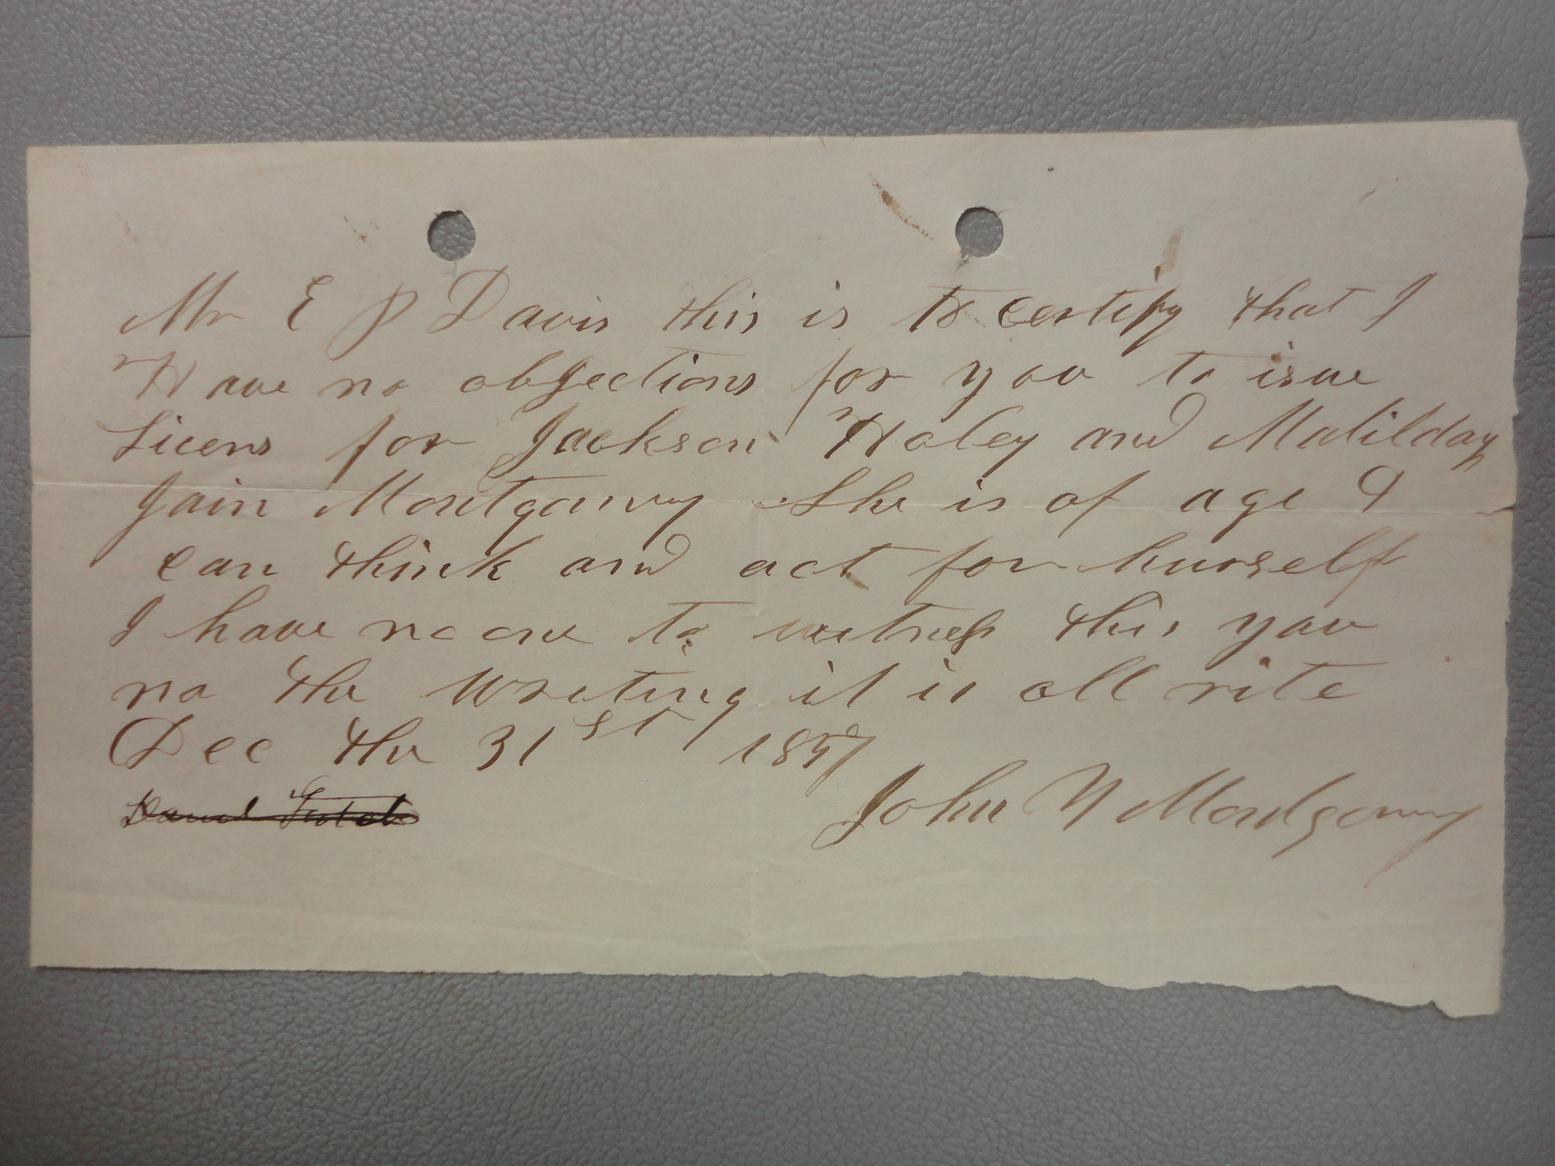 Mr E P Davis this is to certify that I
Have no objections for you to isue
Licens for Jackson Haley and Matilday
Jain Montgomry She is of age &
can think and act for hurself
I have no one to witness this you
no the writing it is all rite
Dec the 31st 1857
John N Montgomry